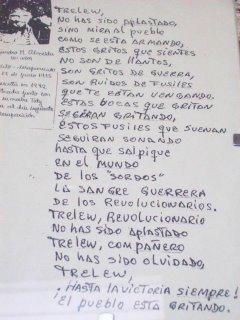 TRELEW,
NO HAS SIDO APLASTADO,
SINO MIRA AL PUEBLO
COMO SE ESTA ARMANDO,
ESTOS GRITOS QUE SIENTES
NO SON DE LLANTOS,
SON GRITOS DE GUERRA,
SON RUIDOS DE FUSILES
QUE TE ESTAN VENGANDO.
ESTAS BOCAS QUE GRITAN
SEGUIRAN GRITANDO,
ESTOS FUSILES QUE SUENAN
SEGUIRAN SONANDO
HASTA QUE SALPIQUE
EN EL MUNDO
DE LOS "SORDOS"
LA SANGRE GUERRERA
DE LOS REVOLUCIONARIOS.
TRELEW, REVOLUCIONARIO
NO HAS SIDO APLASTADO
TRELEW, COMPAÑERO
NO HAS SIDO OLVIDADO,
TRELEW,
¡HASTA LA VICTORIA SIEMPRE!
¡EL PUEBLO ESTA GRITANDO.